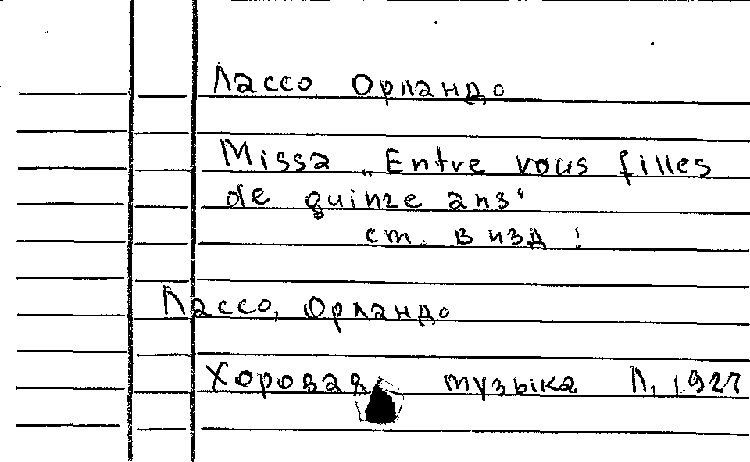 Лассо Орландо
Missa „Entre vous filles
de quinze ans“
ст. в изд :
Лассо, Орландо
Хоровая музыка Л, 1927